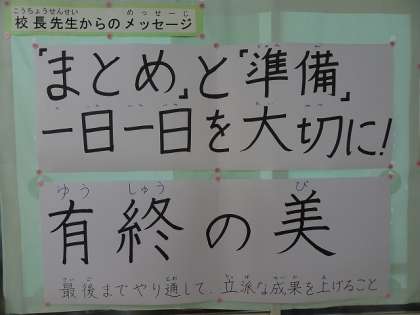 校長先生からのメッセージ
「まとめ」と「準備」
一日一日を大切に!
有終の美
最後までやり通して、立派な成果を上げること